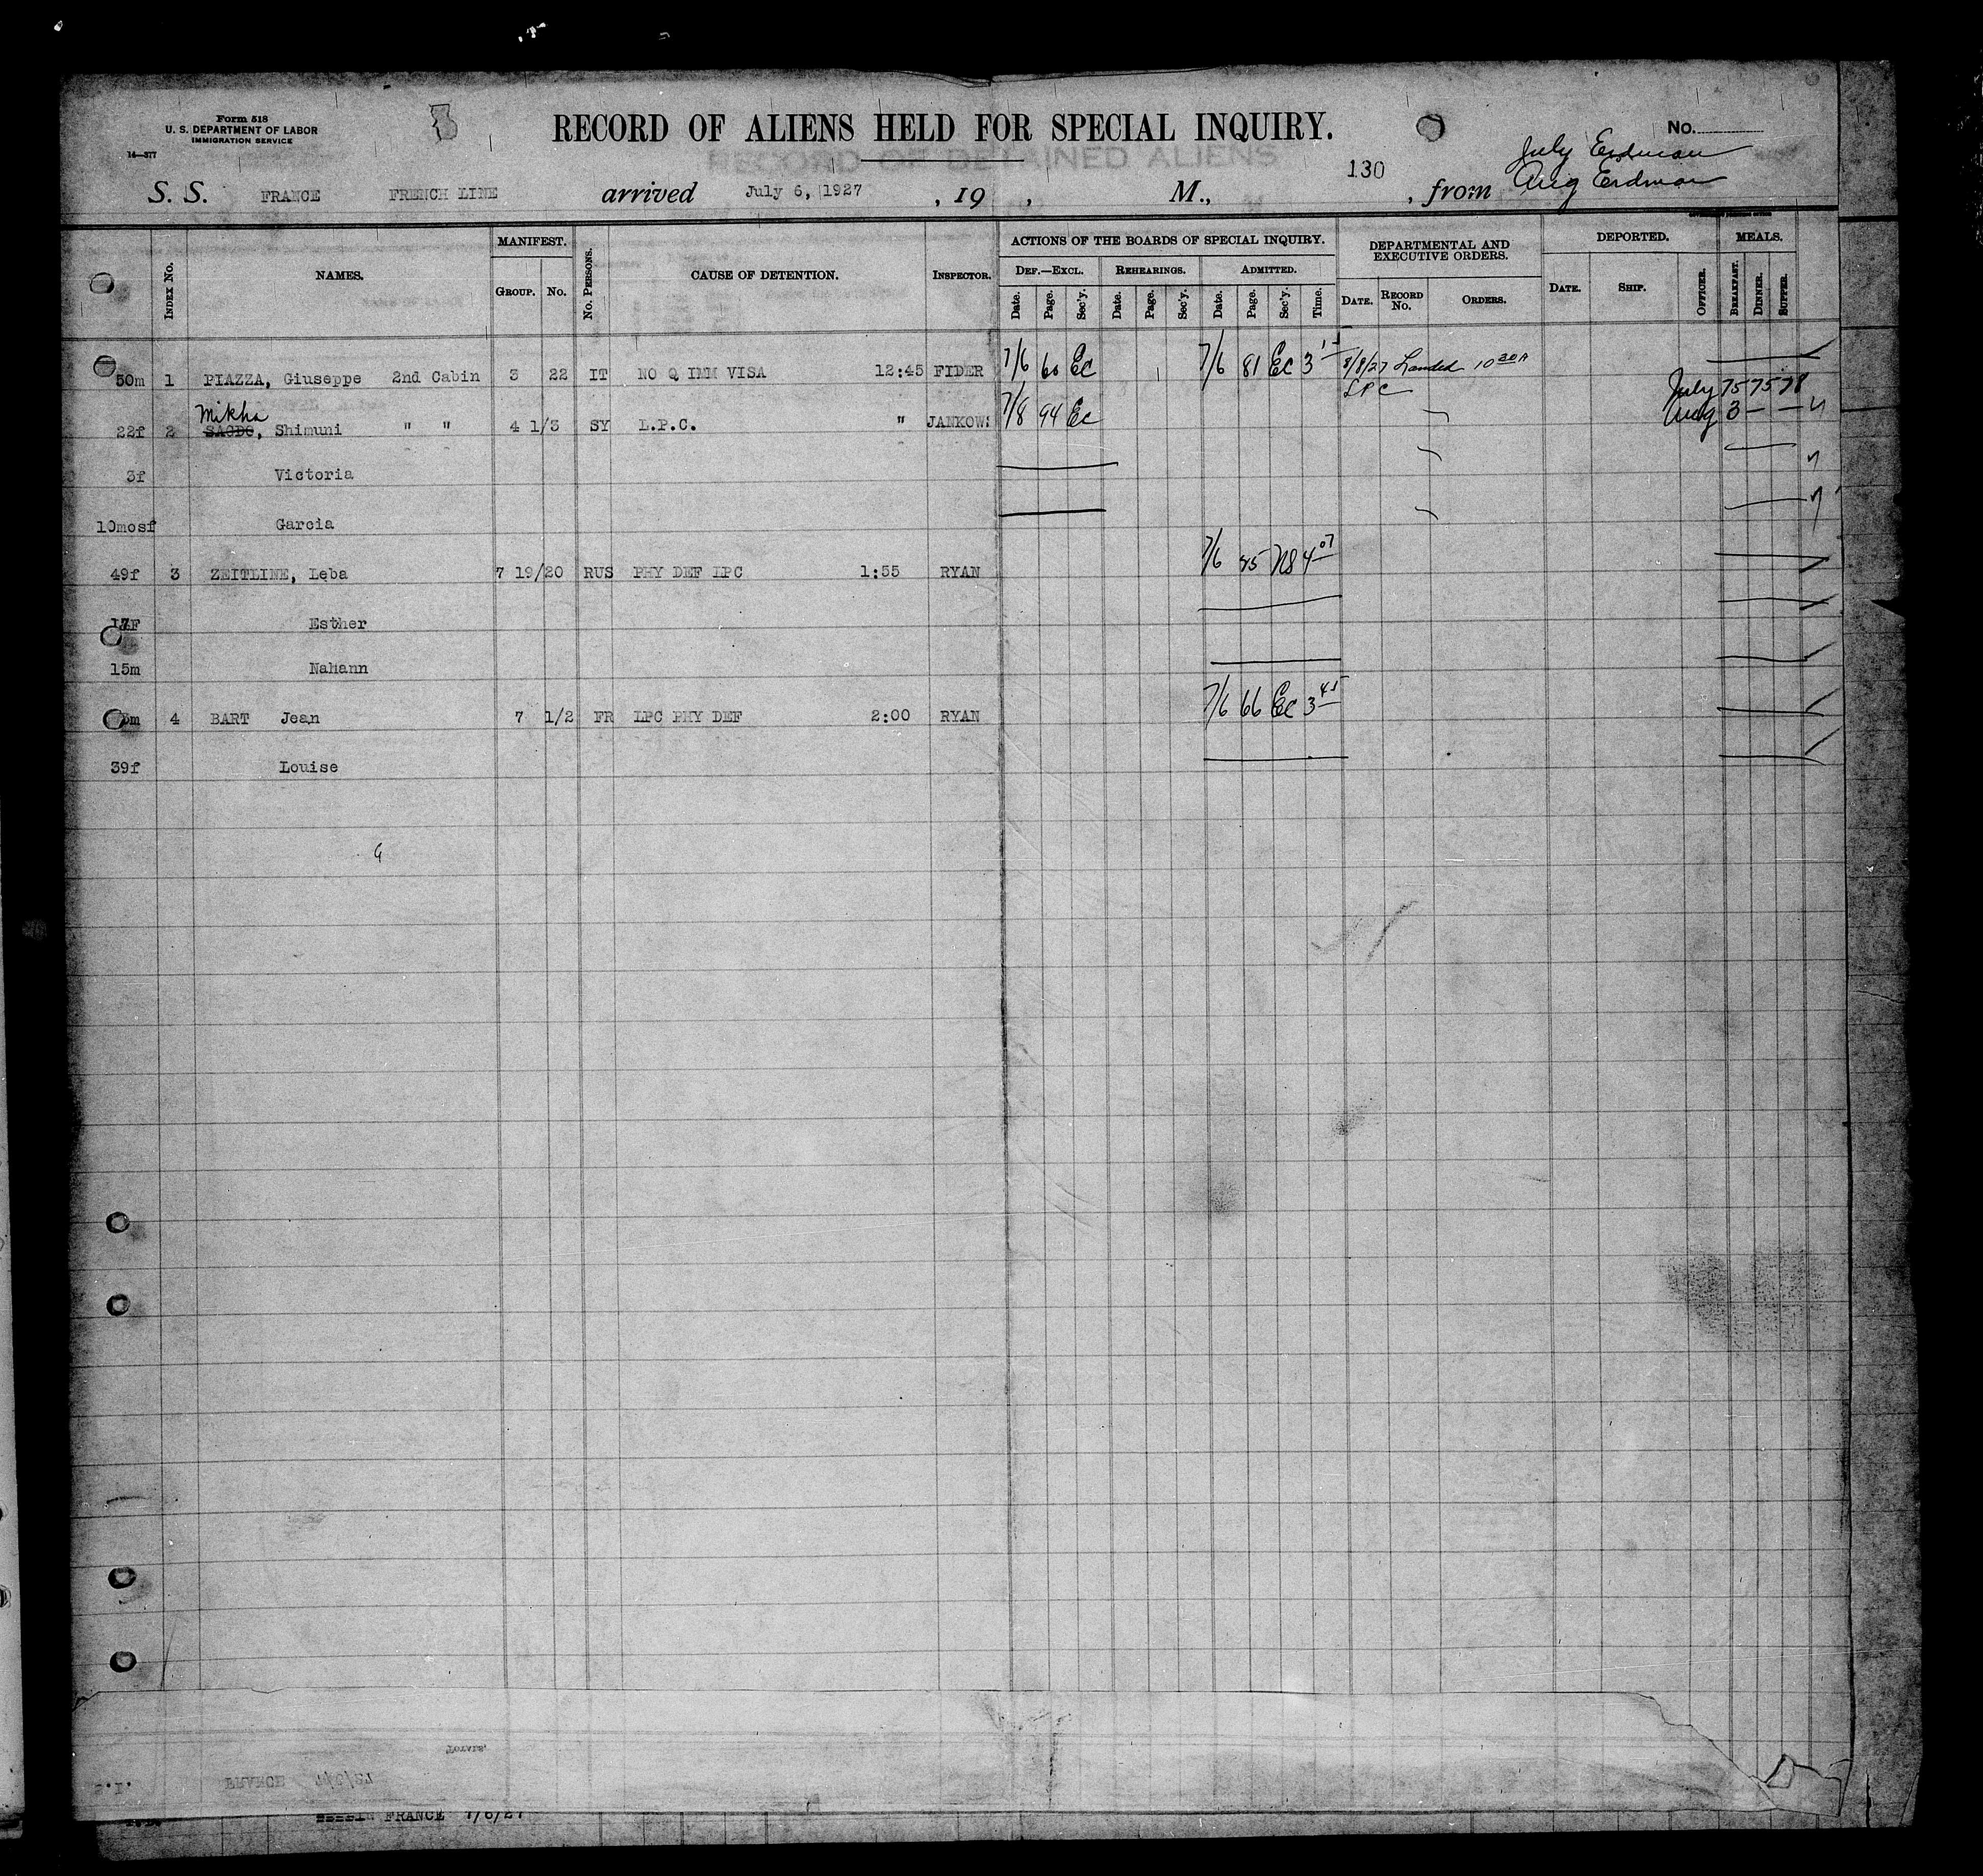 Form 518
U. S. DEPARTMENT OF LABOR
IMMIGRATION SERVICE
14—377
RECORD OF ALIENS HELD FOR SPECIAL INQUIRY.
RECORD OF DETAINED ALIENS
No.
July Erdman
Aug Erdman
S. S. FRANCE FRENCH LINE arrived July 6, 1927, 19 , M., 130 , from
INDEX No. NAMES. MANIFEST. GROUP. No. No. PERSONS. CAUSE OF DETENTION. INSPECTOR.
ACTIONS OF THE BOARDS OF SPECIAL INQUIRY.
DEF.—EXCL. REHEARINGS. ADMITTED.
Date. Page. Sec'y. Date. Page. Sec'y. Date. Page. Sec'y. Time.
DEPARTMENTAL AND EXECUTIVE ORDERS.
DATE. RECORD No. ORDERS.
DEPORTED.
DATE. SHIP. OFFICER.
MEALS.
BREAKFAST. DINNER. SUPPER.
50m 1 PIAZZA, Giuseppe 2nd Cabin 3 22 IT NO Q IMM VISA 12:45 FIDER 7/6 60 Ec 7/6 81 Ec 3 15 8/8/27 Landed 10 30 A
LPC
July 75 75 78
Mikha
22f 2 SAGDO, Shimuni " " 4 1/3 SY L.P.C. " JANKOWS 7/8 94 Ec Aug 3 — —
3f Victoria
10mosf Garcia
49f 3 ZEITLINE, Leba 7 19/20 RUS PHY DEF LPC 1:55 RYAN 7/6 45 NS 4 07
Esther
15m Nahann
4 BART Jean 7 1/2 FR LPC PHY DEF 2:00 RYAN 7/6 66 Ec 3 45
39f Louise
FRANCE 7/6/27